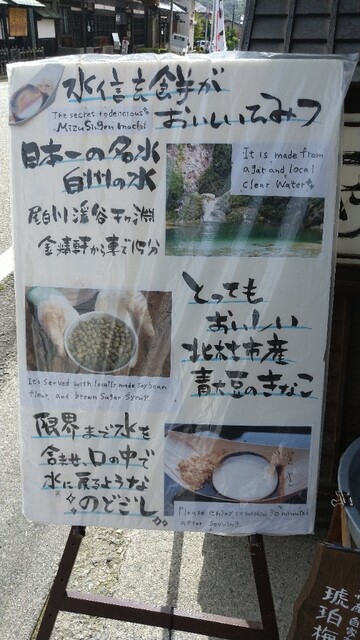 水信玄餅が
おいしいひみつ
The secret to delicious
Mizu Singen mochi
日本一の名水
白州の水
It is made from
agar and local
clear Water
尾白川渓谷千ヶ淵
金精軒から車で15分
とっても
おいしい
北杜市産
青大豆のきなこ
It's served with locally made soybean
flour, and brown Sugar Syrup.
限界まで水を
含ませ、口の中で
水に戻るような
のどごし
Please enjoy it within 30 minutes
after serving.
琥珀梅